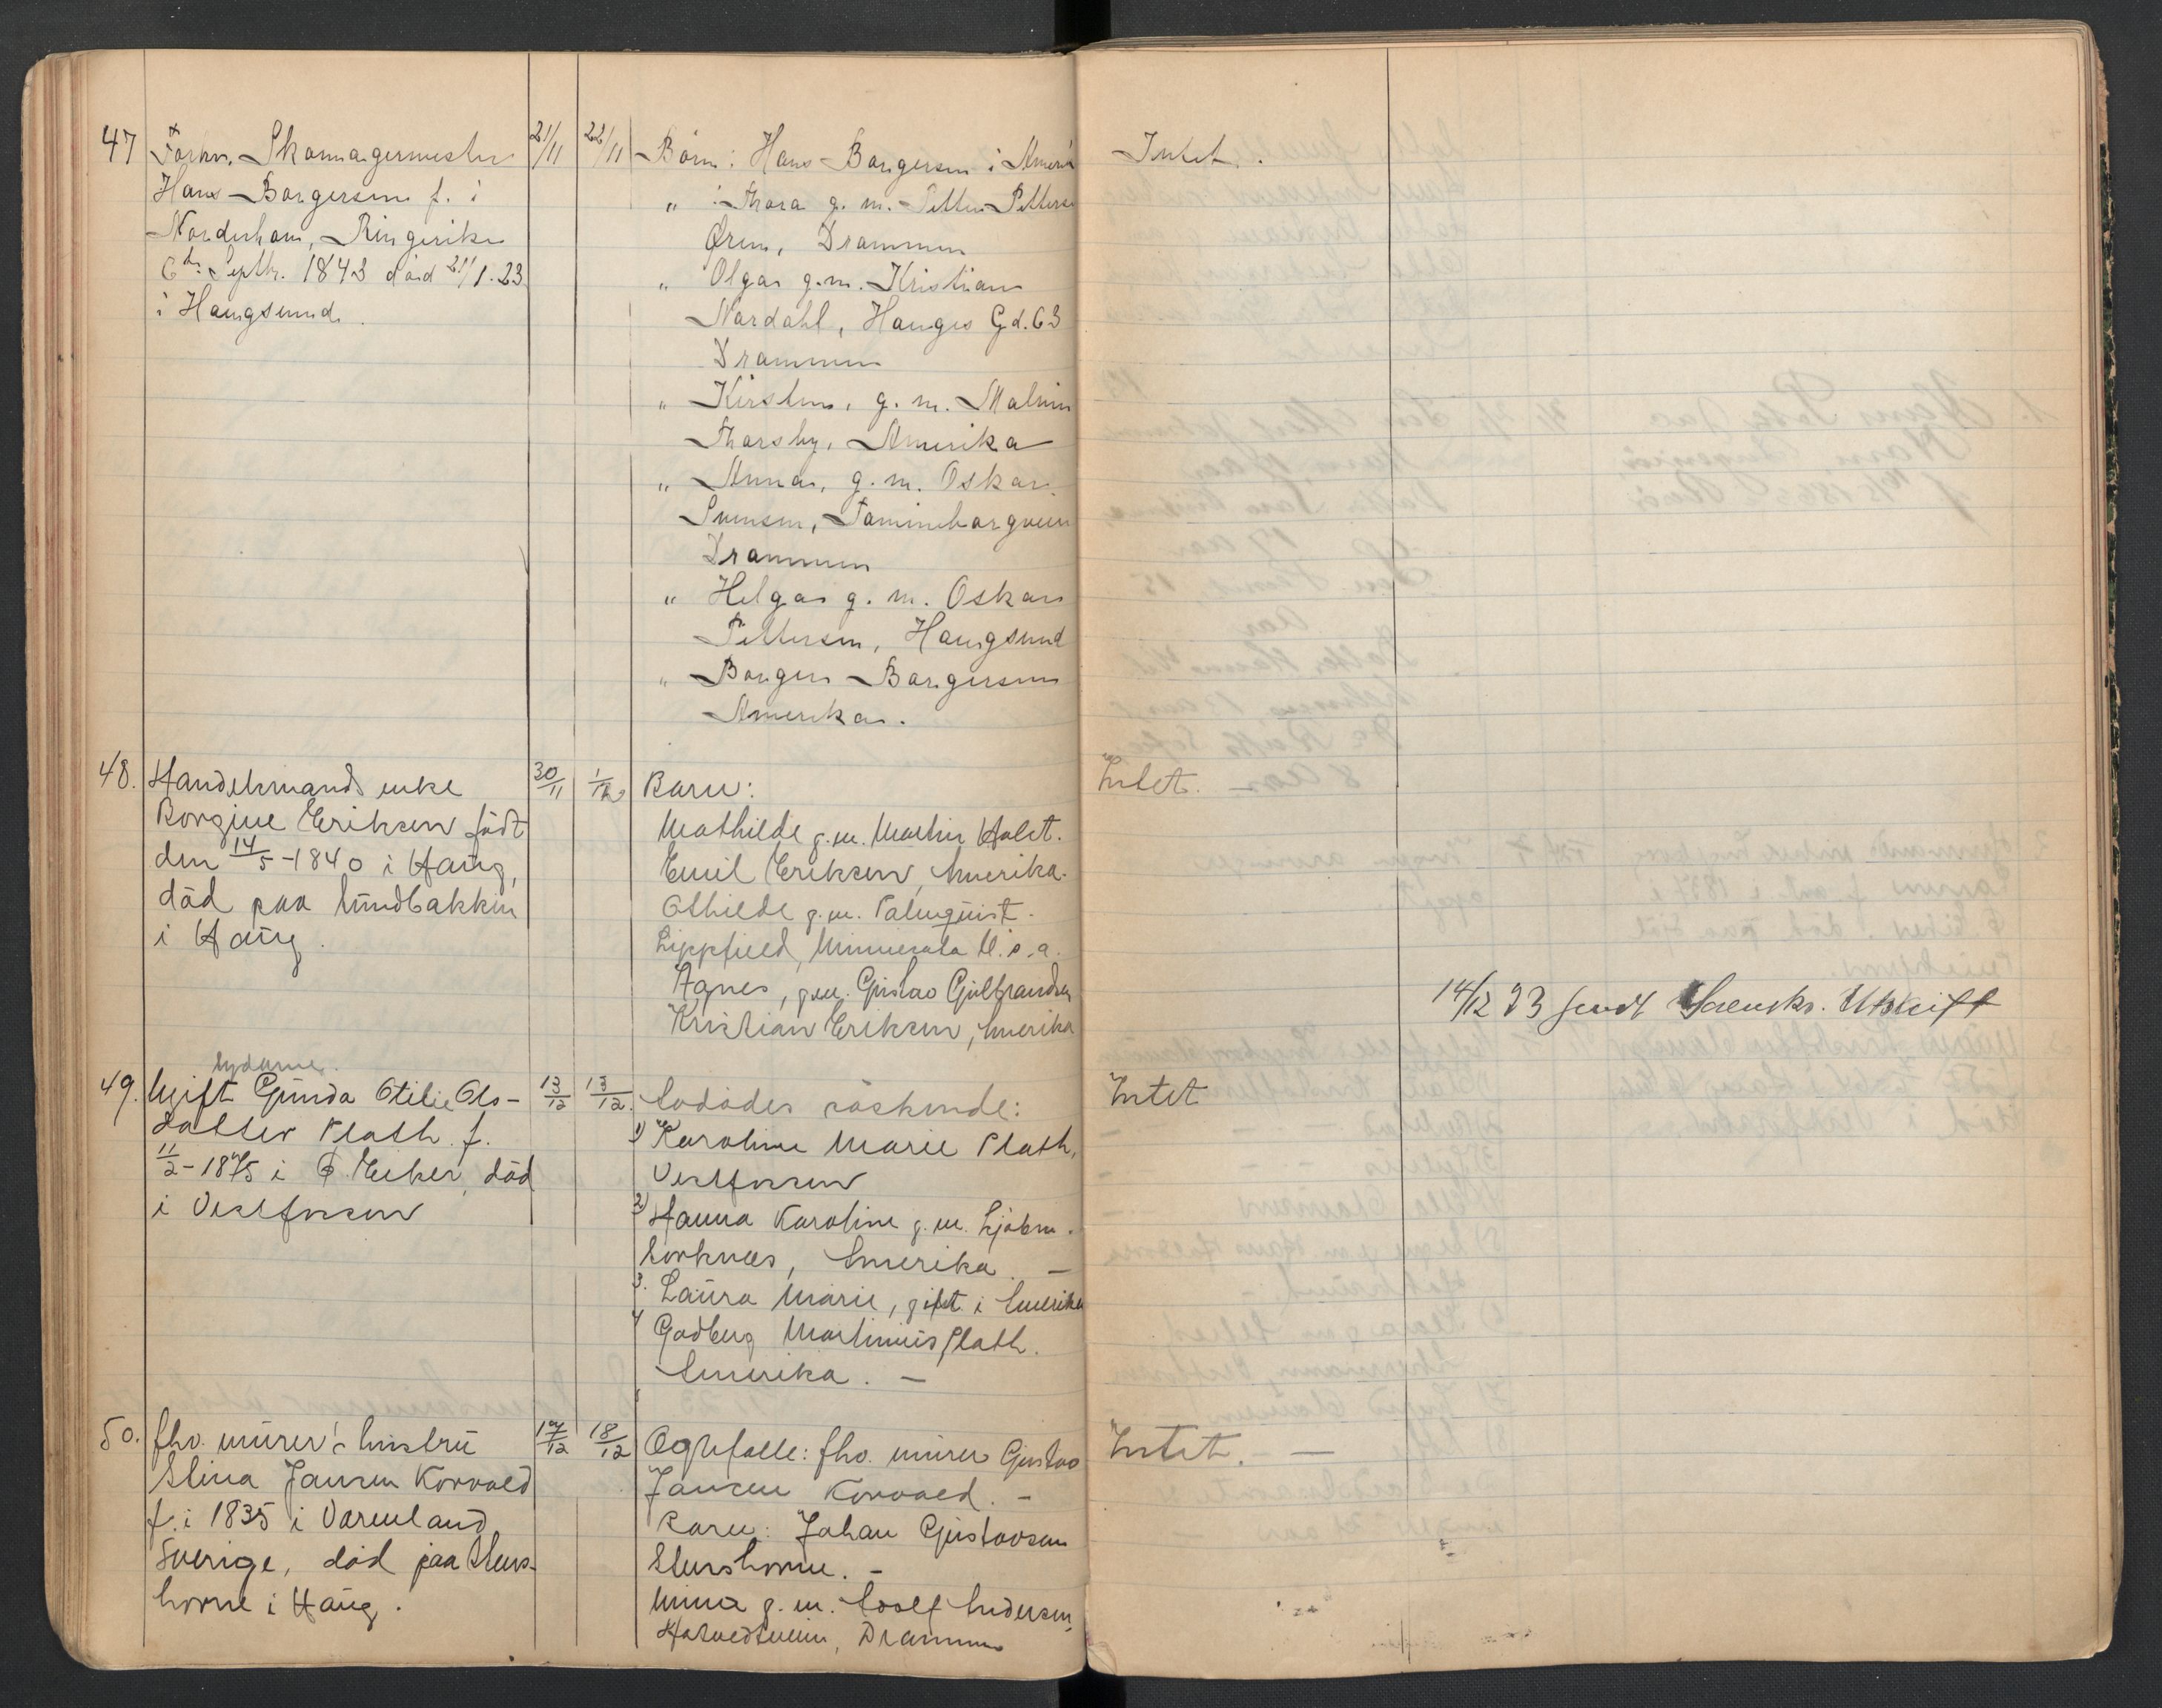 47 Forhv. Skomagermester 21/11 22/11 Børn: Hans Borgersen i Amerika Intet.
Hans Borgersen f. i
" Thora g. m. Petter Petterse
Norderhov, Ringerike
Øren, Drammen
6te Septbr. 1843 død 21/1.23
" Olga g.m. Kristian
i Haugsund.
Nordahl, Hauges Gd. 63
Drammen
" Kirstine, g. m. Malvin
Thorsby, Amerika
" Anna, g. m. Oskar
Svensen,
Drammen
" Helga g. m. Oskar
Pettersen, Haugsund
" Borger Borgersen
Amerika.
48. Handelsmands enke 30/11 1/12 Barn: Intet.
Borgine Eriksen født
Mathilde g. m. Martin Holst.
den 14/5-1840 i Haug,
Emil Eriksen, Amerika.
død paa Lundbakken
Othilde g. m. Palmquist.
i Haug.
Minnesota U.s.a.
Agnes, g.m. Gustav Gulbrandsen
Kristian Eriksen, Amerika
14/12 23 sendt Sorensks. Utskrift
sydame.
49. Ugift Gunda Otilie Ols- 13/12 13/12. Avdødes søskende: Intet
datter Plath. f.
1) Karoline Marie Plath,
11/2-1875 i Ø. Eiker, død
Vestfossen
i Vestfossen
2) Hanna Karoline g. m.
Amerika. —
3. Laura Marie, gift i Amerika
4 Godberg Martinius Plath.
Amerika. —
50. fhv. murer's hustru 17/12 18/12 Egtefælle: fhv. murer Gustav Intet. —
Stina Jansen Korvald
Jansen Korvald. –
f. i 1835 i Varmland
Barn: Johan Gustavsen
Sverige, død paa Stens-
Stenshorne. –
horne i Haug.
Minna g. m. Adolf Andersen,
Drammen